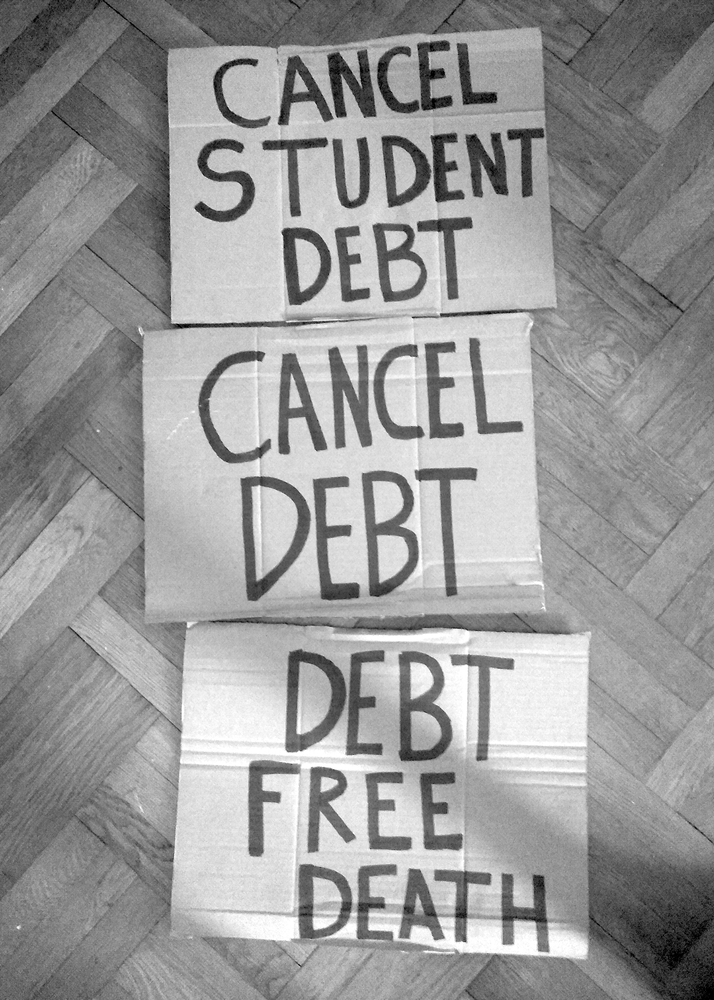 CANCEL
STUDENT
DEBT
CANCEL
DEBT
DEBT
FREE
DEATH